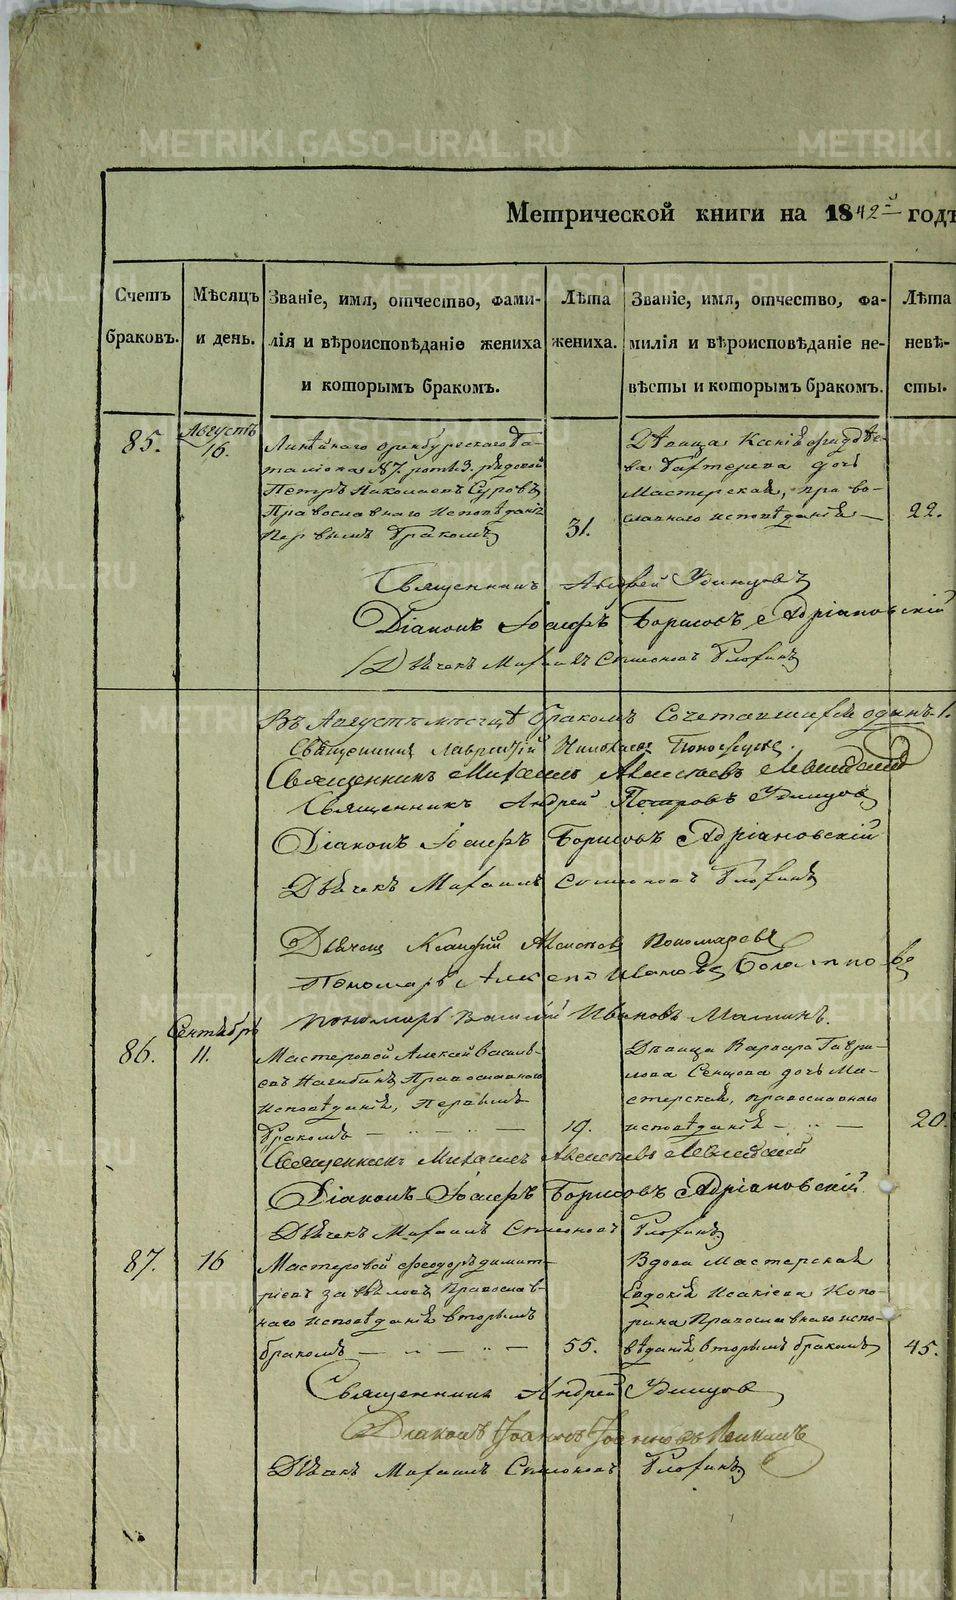 METRIKI.GASO-URAL.RU
Метрической книги на 1842й годъ
Счетъ браковъ.
Мѣсяцъ и день.
Званіе, имя, отчество, фамилія и вѣроисповѣданіе жениха и которымъ бракомъ.
Лѣта жениха.
Званіе, имя, отчество, фамилія и вѣроисповѣданіе невѣсты и которымъ бракомъ.
Лѣта невѣсты.
85.
Августъ
16.
Линѣйнаго оренбургскаго ба-
таліона №7. роты 3. рядовой
Петръ Николаевъ Суровъ
Православнаго исповѣданія
Первымъ бракомъ
31.
Дѣвица Ксенія
дочь
Мастерская, право-
славнаго исповѣданія —
22.
Священникъ Андрей Удинцовъ
Діаконъ Іосифъ Борисовъ Адріановскій
Дьячекъ Михаилъ Симоновъ
Въ Августѣ мѣсяцѣ бракомъ Сочетавшихся одинъ 1.
Священникъ Лаврентій Николаевъ
Священникъ Михаилъ Алексѣевъ
Священникъ Андрей Петровъ Удинцовъ
Діаконъ Іосифъ Борисовъ Адріановскій
Дьячекъ Михаилъ Симоновъ
Дьячекъ Пономаревъ
Пономарь Алексѣй Ивановъ
пономарь Василій Ивановъ
86.
Сентябрь
11.
Мастеровой Алексѣй Василь-
евъ Нагибинъ Православнаго
исповѣданія, Первымъ
бракомъ —
19.
Дѣвица Варвара Гаври-
лова Сенцова дочь Ма-
стерская, православнаго
исповѣданія —
20.
Священникъ Михаилъ Алексѣевъ
Діаконъ Іосифъ Борисовъ Адріановскій
Дьячекъ Михаилъ Симоновъ
87.
16
Мастеровой Феодоръ димит-
ріевъ Завьяловъ Православ-
наго исповѣданія вторымъ
бракомъ —
55.
Вдова Мастерская
Евдокія Исакіева
Православнаго испо-
вѣданія вторымъ бракомъ
45.
Священникъ Андрей Удинцовъ
Діаконъ Іоаннъ Іоанновъ
Дьячекъ Михаилъ Симоновъ